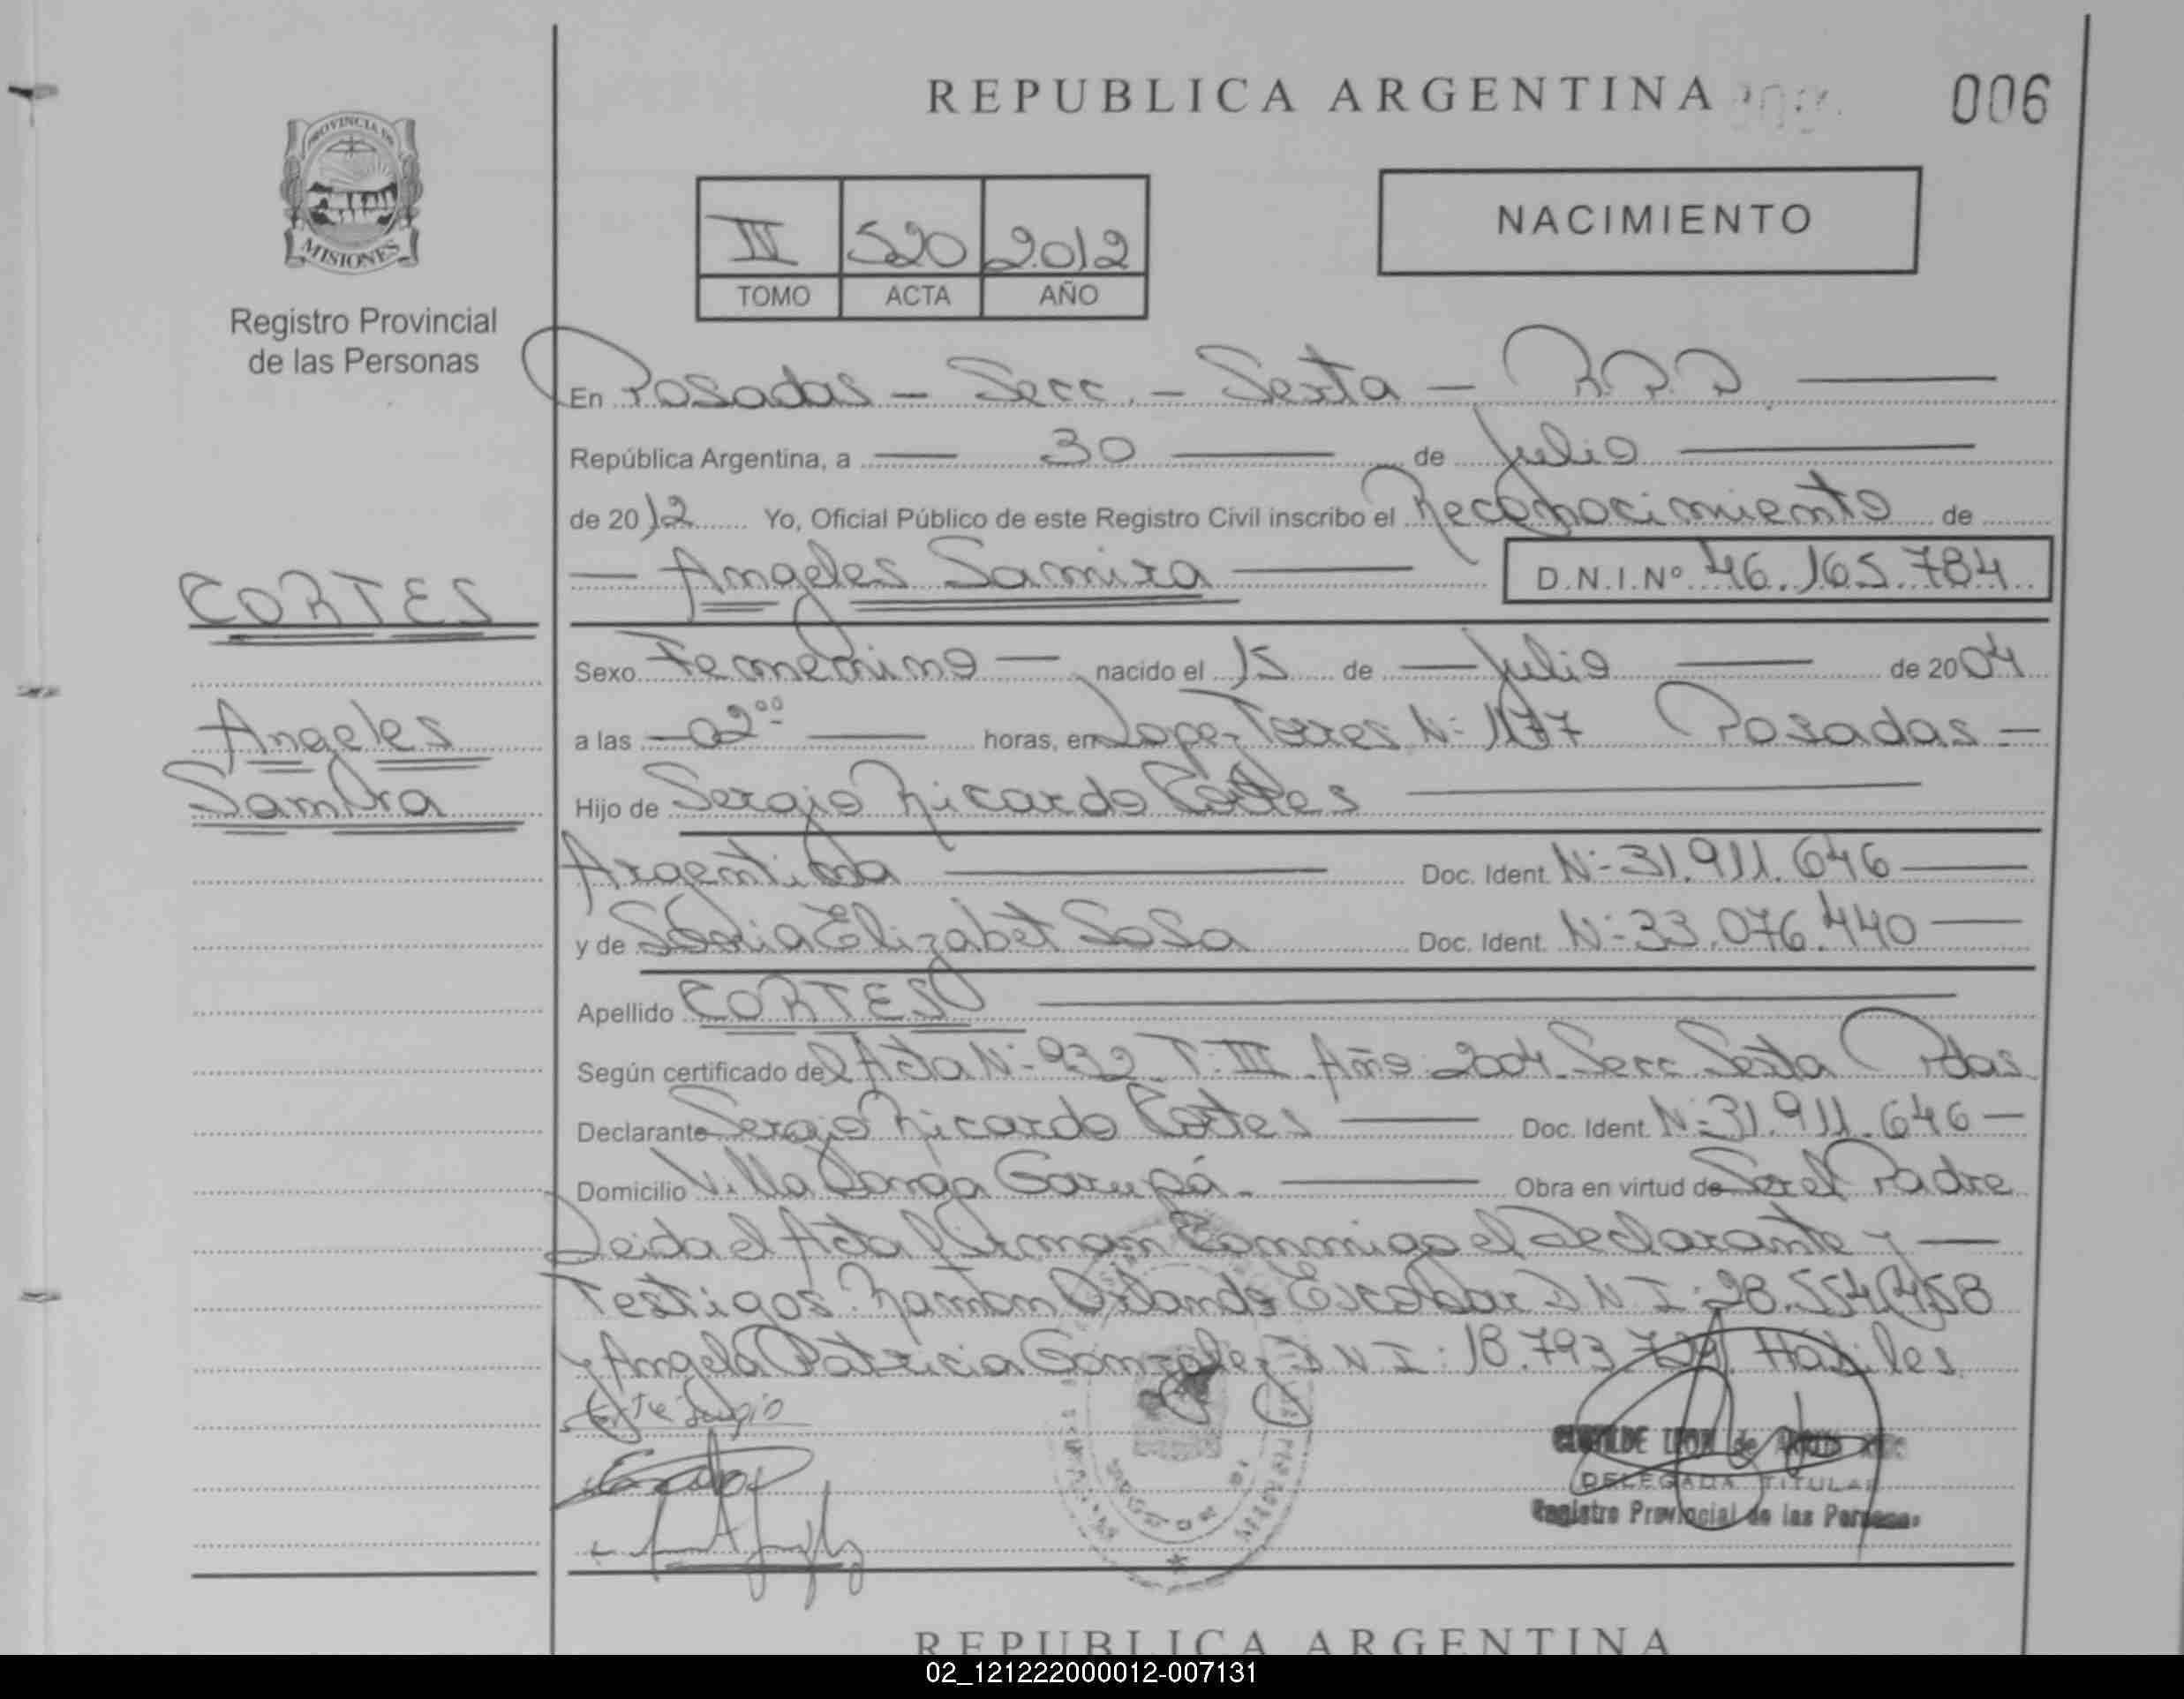 REPUBLICA ARGENTINA
006
PROVINCIA DE
MISIONES
Registro Provincial
de las Personas
III 520 2012
TOMO ACTA AÑO
NACIMIENTO
En Posadas - Secc. - Sexta - R.P.P.
República Argentina, a 30 de Julio
de 2012 Yo, Oficial Público de este Registro Civil inscribo el Reconocimiento de
Angeles Samira D.N.I.Nº 46.165.784
CORTES
Angeles
Samira
Sexo Femenino nacido el 15 de Julio de 2004
a las 02⁰⁰ horas, en Lopez Torres N- 1177 Posadas -
Hijo de Sergio Ricardo Cortes
Argentina Doc. Ident. N- 31.911.646
y de Sonia Elizabet Sosa Doc. Ident. N- 33.076.440
Apellido CORTES
Según certificado del Acta N- 932 T: III Año 2004 Secc Sexta Pdas
Declarante Sergio Ricardo Cortes Doc. Ident. N- 31.911.646
Domicilio Villa Longa Garupá - Obra en virtud de Ser el Padre
Leida el Acta Firman Conmigo el Declarante y
Testigos Ramon Orlando Escobar D N I: 28.
y Angela Patricia Gonzalez D N I: 18.793. Hábiles
DELEGADA TITULAR
Registro Provincial de las Personas
REPUBLICA ARGENTINA
02_121222000012-007131